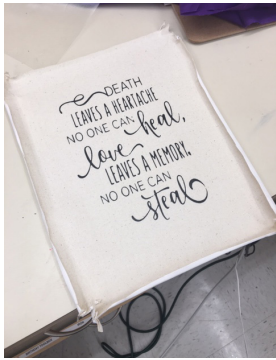 DEATH
LEAVES A HEARTACHE
NO ONE CAN heal,
love
LEAVES A MEMORY,
NO ONE CAN
steal